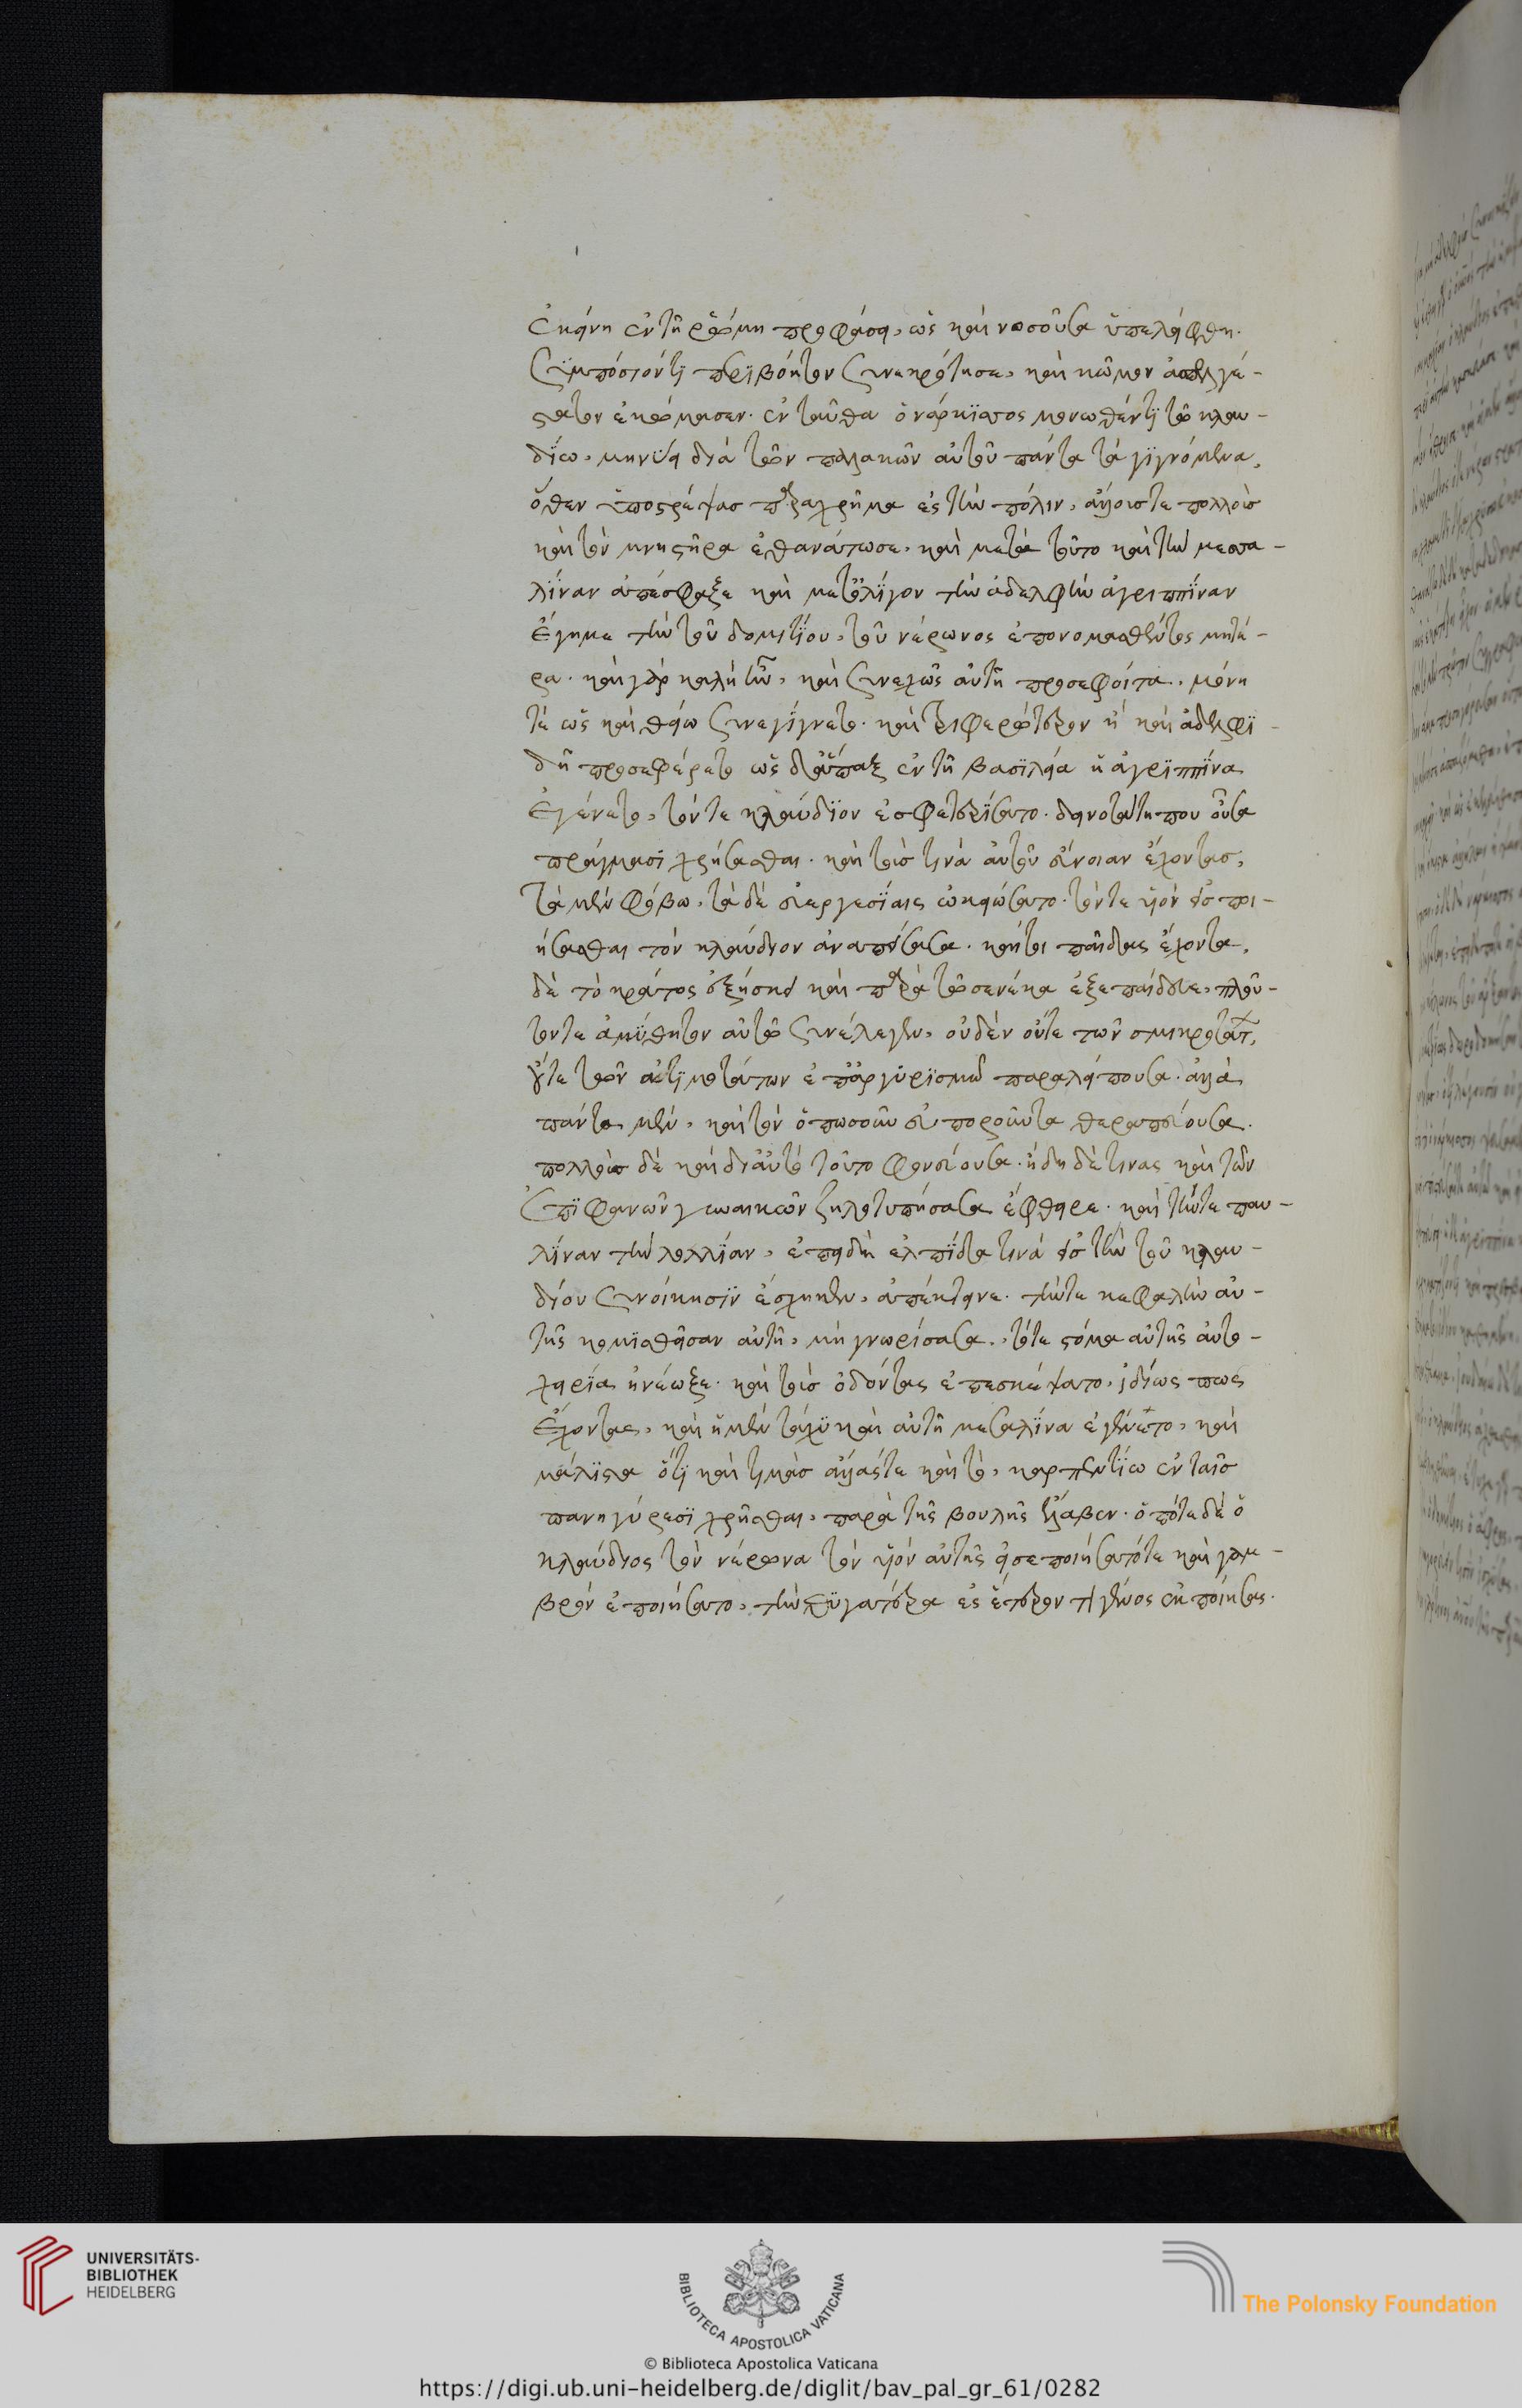 ἐκείνη ἐν τῇ ῥώμῃ προφάσει, ὡς καὶ νοσοῦσα ὑπελείφθη.
συμπόσιόν τι περιβόητον συνεκρότησε, καὶ κῶμον ἀσελγέ-
στατον ἐκώμασεν. ἐνταῦθα ὁ νάρκισσος μονωθέντι τῷ κλαυ-
δίῳ, μηνύει διὰ τῶν παλλακῶν αὐτοῦ πάντα τὰ γιγνόμενα.
ὅθεν ὑποστρέψας παραχρῆμα ἐς τὴν πόλιν, ἄλλους τε πολλοὺς
καὶ τὸν μνηστῆρα ἐθανάτωσε, καὶ μετὰ τοῦτο καὶ τὴν μεσσα-
λίναν ἀπέσφαξε καὶ μετ' ὀλίγον τὴν ἀδελφὴν ἀγριππίναν
ἔγημε τὴν τοῦ δομιτίου, τοῦ νέρωνος ἐπονομασθέντος μητέ-
ρα. καὶ γὰρ καλὴ ἦν, καὶ συνεχῶς αὐτῇ προσεφοίτα. μόνη
τε ὡς καὶ θείῳ συνεγίγνετο. καὶ τρυφερώτερον ἢ καὶ ἀδελφι-
δῆ προσεφέρετο ὡς δ' ἅπαξ ἐν τῇ βασιλείᾳ ἡ ἀγριππίνα
ἐγένετο, τόν τε κλαύδιον ἐσφετερίσατο. δεινοτάτη που οὖσα
πράγμασι χρήσασθαι. καὶ τοὺς τινὰ αὐτοῦ εὔνοιαν ἔχοντας,
τὰ μὲν φόβῳ, τὰ δὲ εὐεργεσίαις ᾠκειώσατο. τόν τε υἱὸν ἐσποι-
ήσασθαι τὸν κλαύδιον ἀναπείσασα. καί τοι παῖδας ἔχοντα,
δὲ τὸ κράτος καὶ παρὰ τῷ σενέκα ἐξεπαίδευε, πλοῦ-
τόν τε ἀμύθητον αὐτῷ συνέλεγεν, οὐδὲν οὔτε τῶν σμικροτάτων,
οὔτε τῶν ἀτιμοτάτων ἐπ' ἀργυρισμῷ παραλείπουσα. ἀλλὰ
πάντα μὲν, καὶ τὸν ὁπωσοῦν εὐποροῦντα θεραπεύουσα.
πολλοὺς δὲ καὶ δι' αὐτὸ τοῦτο φονεύουσα. ἤδη δέ τινας καὶ τῶν
ἐπιφανῶν γυναικῶν ζηλοτυπήσασα ἔφθειρε. καὶ τήν τε παυ-
λίναν τὴν λολλίαν, ἐπειδὴ ἐλπίδα τινὰ ἐς τὴν τοῦ κλαυ-
δίου συνοίκησιν ἐσχήκει, ἀπέκτεινε. τήν τε κεφαλὴν αὐ-
τῆς κομισθεῖσαν αὐτῇ, μὴ γνωρίσασα, τό τε στόμα αὐτῆς αὐτο-
χειρίᾳ ἠνέωξε. καὶ τοὺς ὀδόντας ἐπεσκέψατο, ἰδίως πως
ἔχοντας, καὶ ἡ μὲν ταχὺ καὶ αὐτὴ μεσαλίνα ἐγένετο, καὶ
μάλιστα ὅτι καὶ τιμὰς ἄλλας τε καὶ τὸ, καρπεντίῳ ἐν ταῖς
πανηγύρεσι χρῆσθαι, παρὰ τῆς βουλῆς ἔλαβεν. ὁπότε δὲ ὁ
κλαύδιος τὸν νέρωνα τὸν υἱὸν αὐτῆς εἰσεποιήσατό τε καὶ γαμ-
βρὸν ἐποιήσατο, τὴν θυγατέρα ἐς ἕτερόν τι γένος ἐκποιήσας.
UNIVERSITÄTS-
BIBLIOTHEK
HEIDELBERG
BIBLIOTECA APOSTOLICA VATICANA
© Biblioteca Apostolica Vaticana
The Polonsky Foundation
https://digi.ub.uni-heidelberg.de/diglit/bav_pal_gr_61/0282